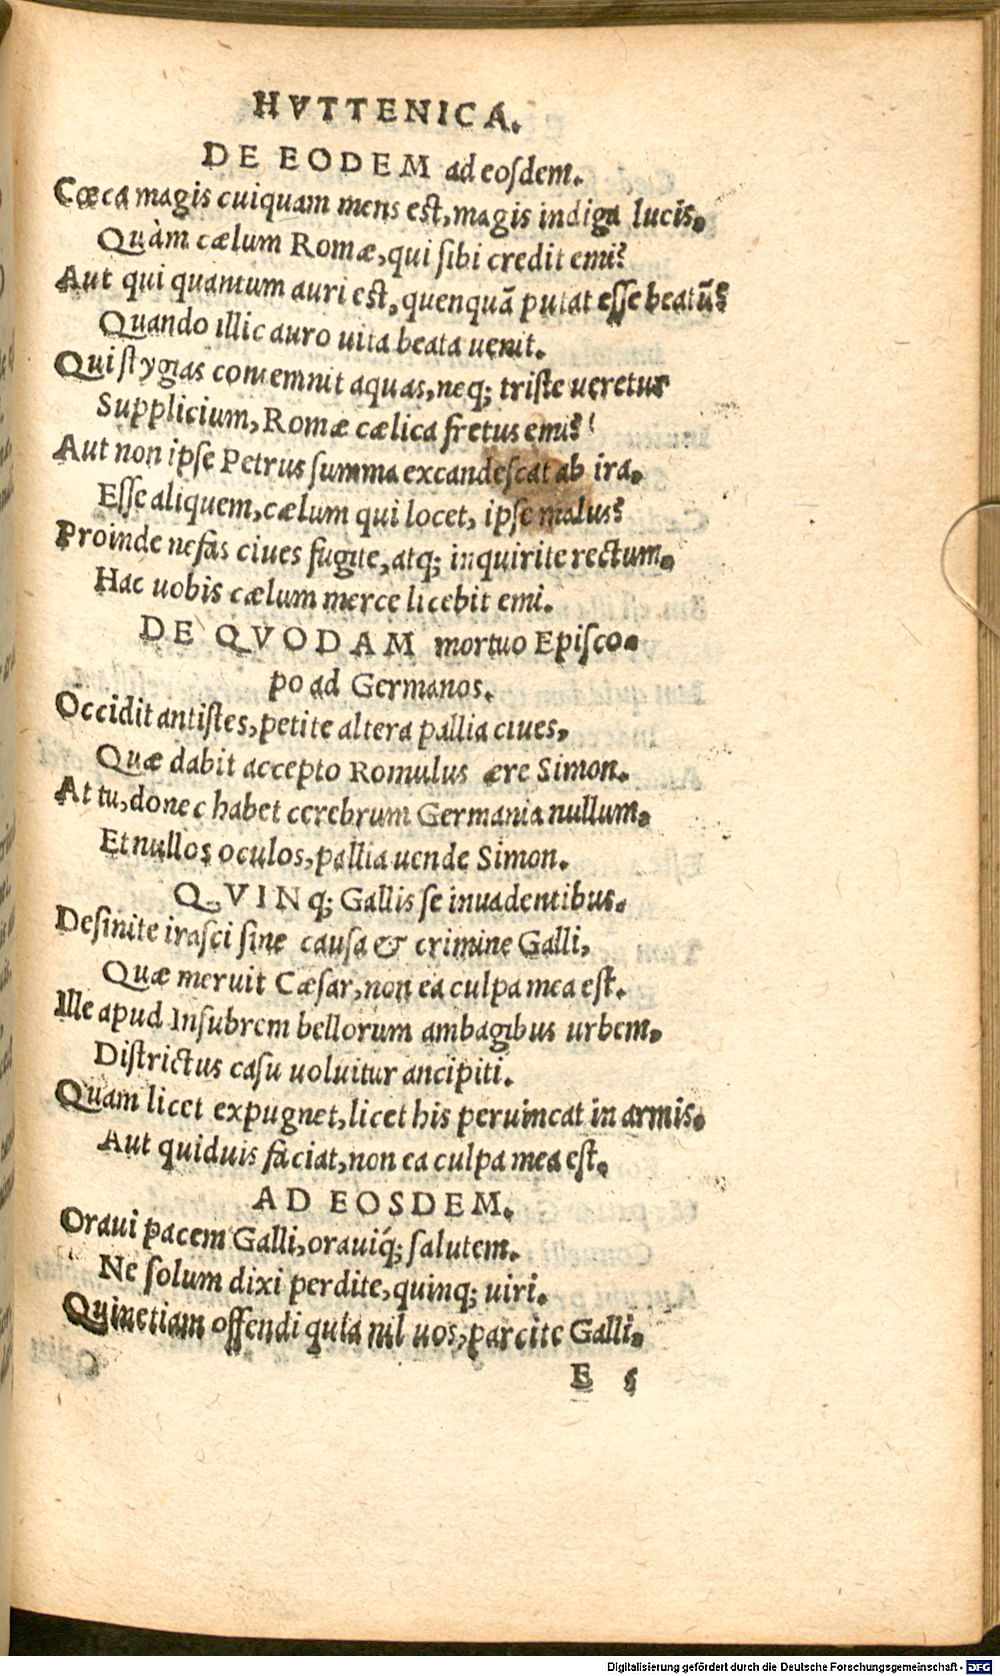 HVTTENICA.
DE EODEM ad eosdem.
Cœca magis cuiquam mens est, magis indiga lucis,
Quàm cælum Romæ, qui sibi credit emi?
Aut qui quantum auri est, quenquã putat esse beatũ?
Quando illic auro uita beata uenit.
Qui stygias contemnit aquas, neq; triste ueretur
Supplicium, Romæ cælica fretus emi?
Aut non ipse Petrus summa excandescat ab ira,
Esse aliquem, cælum qui locet, ipse malus?
Proinde nefas ciues fugite, atq; inquirite rectum,
Hac uobis cælum merce licebit emi.
DE QVODAM mortuo Episco-
po ad Germanos.
Occidit antistes, petite altera pallia ciues,
Quæ dabit accepto Romulus ære Simon.
At tu, donec habet cerebrum Germania nullum,
Et nullos oculos, pallia uende Simon.
QVINq; Gallis se inuadentibus.
Desinite irasci sine causa & crimine Galli,
Quæ meruit Cæsar, non ea culpa mea est.
Ille apud Insubrem bellorum ambagibus urbem,
Districtus casu uoluitur ancipiti.
Quam licet expugnet, licet his peruincat in armis,
Aut quiduis faciat, non ea culpa mea est.
AD EOSDEM.
Oraui pacem Galli, orauiq́; salutem.
Ne solum dixi perdite, quinq; uiri.
Quinetiam offendi quia nil uos, parcite Galli,
E 5
Digitalisierung gefördert durch die Deutsche Forschungsgemeinschaft - DFG